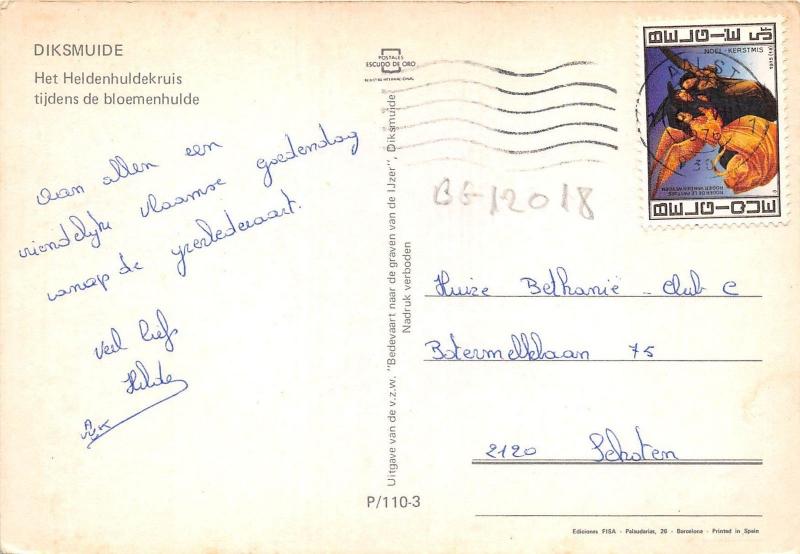 DIKSMUIDE
Het Heldenhuldekruis
tijdens de bloemenhulde
aan allen een
vriendelijke vlaamse goedendag
vanop de ijzerbedevaart.
Veel liefs
Hilde
AVVK
POSTALES
ESCUDO DE ORO
Uitgave van de v.z.w. "Bedevaart naar de graven van de IJzer", Diksmuide
Nadruk verboden
P/110-3
BELGIË 5F
NOËL-KERSTMIS
AALST
ROGIER VAN DER WEYDEN
BELGIQUE
BG12018
Huize Bethanië - club C
Botermelklaan 75
2120 Schoten
Ediciones FISA - Palaudarias, 26 - Barcelona - Printed in Spain